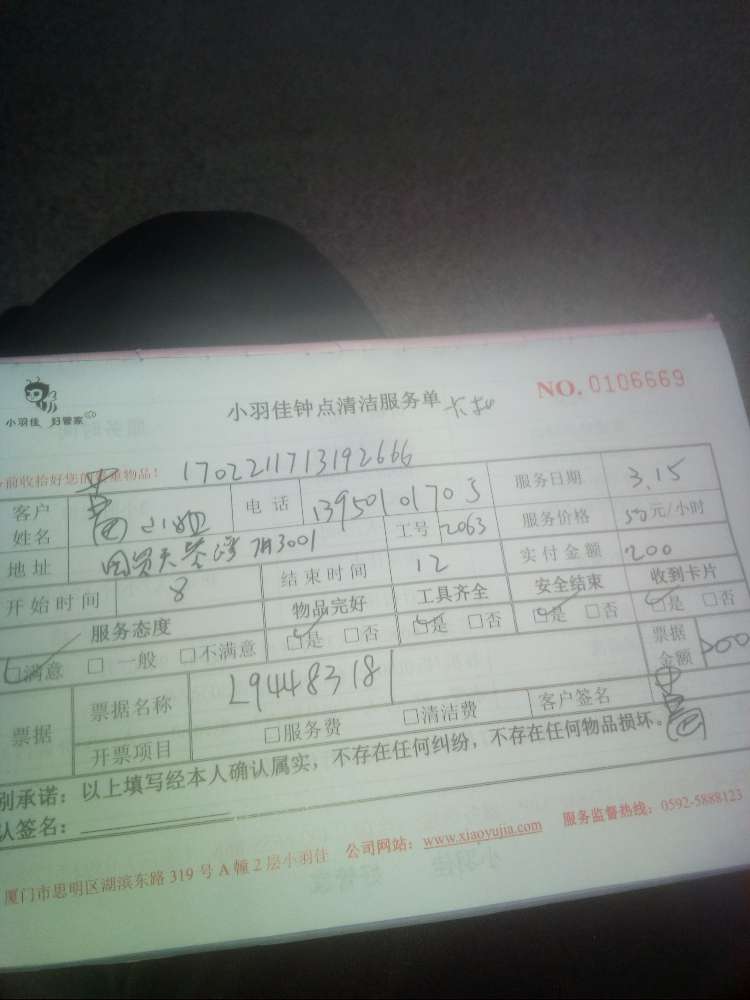 小羽佳 好管家
小羽佳钟点清洁服务单
NO. 0106669
前收拾好您的贵重物品! 1702211713192666
客户姓名 小姐 电话 13950101705 服务日期 3.15
地址 国贸天琴湾 3001 工号 2063 服务价格 50元/小时
开始时间 8 结束时间 12 实付金额 200
服务态度 物品完好 工具齐全 安全结束 收到卡片
☑满意 □ 一般 □不满意 ☑是 □否 ☑是 □否 ☑是 □否 ☑是 □否
票据 票据名称 L94483181 票据金额 200
开票项目 □服务费 □清洁费 客户签名
别承诺：以上填写经本人确认属实，不存在任何纠纷，不存在任何物品损坏。
认签名：
厦门市思明区湖滨东路 319 号 A 幢 2 层小羽佳 公司网站：www.xiaoyujia.com 服务监督热线：0592-5888123